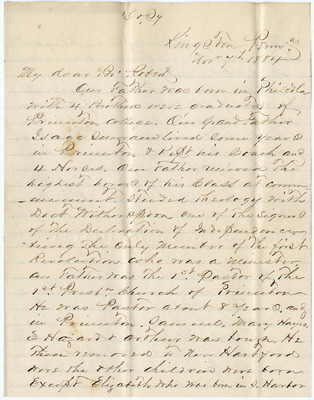 Copy
Kingston, Penna
Nov 7th 1884
My dear Bro Robert
Our Father was born in Philada
with 4 Brothers were graduates of
Princeton College. Our Grand Father
Isaac Snowden lived some years
in Princeton & Kept his Coach and
4 Horses. Our Father received the
highest honors of his Class at Comm
encement. Studied Theology with
Doct Witherspoon one of the signers
of the Declaration of Independence
being the only Member of the first
Revolution who was a minister,
our Father was the 1st Pastor of the
1st Presbn Church of Princeton
He was Pastor about 8 years and
in Princeton. Samuel, Mary Hays,
E Hazard & Arthur was born. He
then removed to New Hartford
were the other children were born
Except Elizabeth who was born in S. Harbor